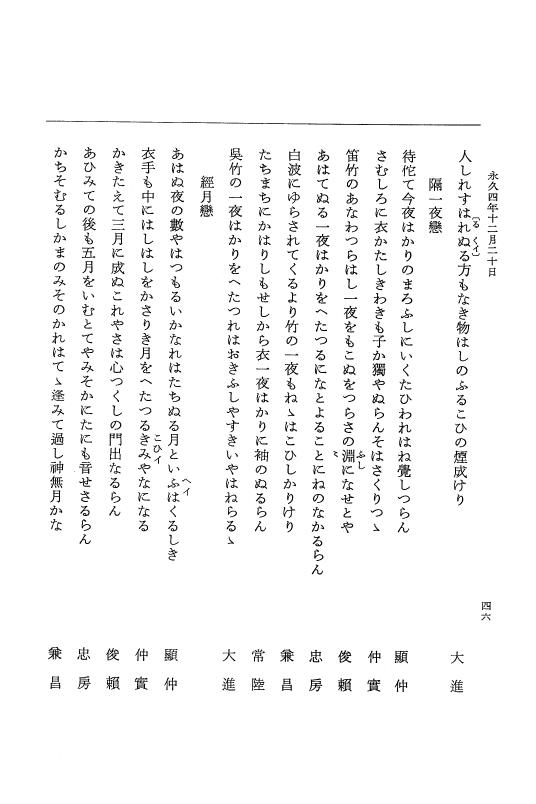 永久四年十二月二十日
四六
人しれすはれぬる方もなき物はしのふるこひの煙成けり 大進
〔る くイ〕
隔一夜戀
待侘て今夜はかりのまろふしにいくたひわれはね覺しつらん 顯仲
さむしろに衣かたしきわきも子か獨やぬらんそはさくりつゝ 仲實
笛竹のあなわつらはし一夜をもこぬをつらさの淵になせとや 俊賴
ふし
あはてぬる一夜はかりをへたつるになとよることにねのなかるらん 忠房
白波にゆらされてくるより竹の一夜もねゝはこひしかりけり 兼昌
たちまちにかはりしもせしから衣一夜はかりに袖のぬるらん 常陸
吳竹の一夜はかりをへたつれはおきふしやすきいやはねらるゝ 大進
經月戀
あはぬ夜の數やはつもるいかなれはたちぬる月といふはくるしき 顯仲
へイ
衣手も中にはしはしをかさりき月をへたつるきみやなになる 仲實
こひイ
かきたえて三月に成ぬこれやさは心つくしの門出なるらん 俊賴
あひみての後も五月をいむとてやみそかにたにも音せさるらん 忠房
かちそむるしかまのみそのかれはてゝ逢みて過し神無月かな 兼昌